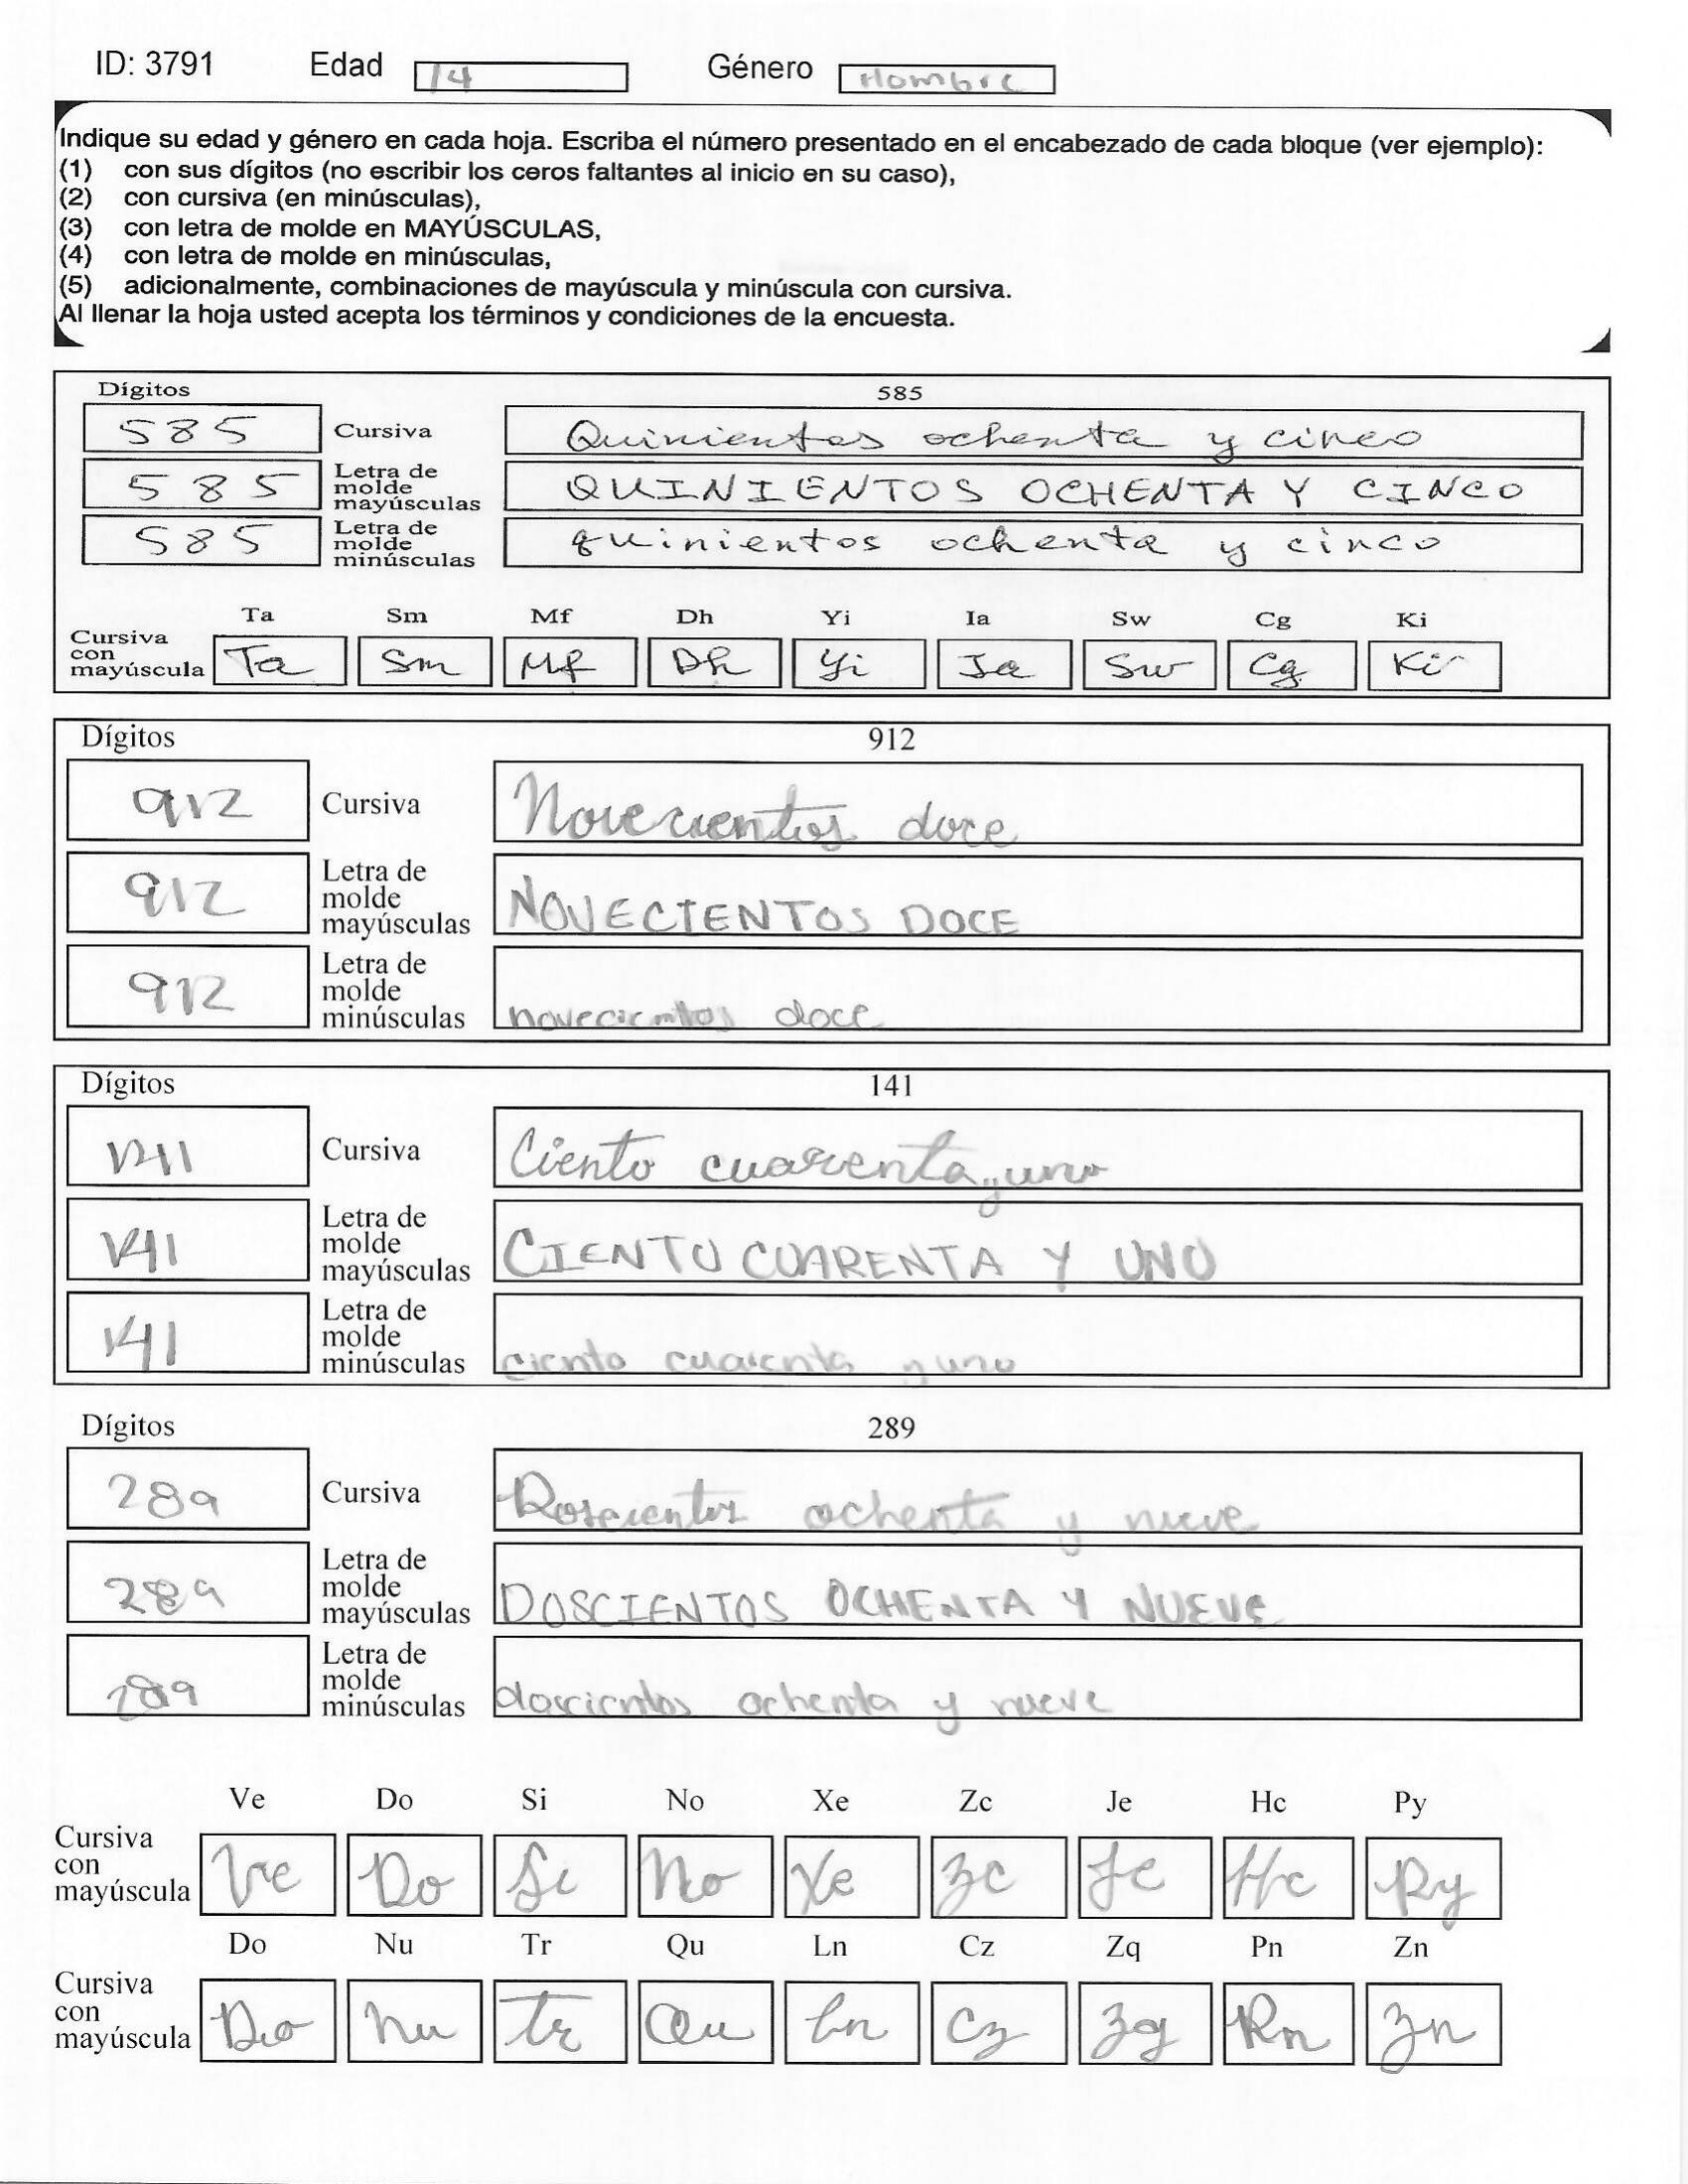 ID: 3791 Edad 14 Género Hombre
Indique su edad y género en cada hoja. Escriba el número presentado en el encabezado de cada bloque (ver ejemplo):
(1) con sus dígitos (no escribir los ceros faltantes al inicio en su caso),
(2) con cursiva (en minúsculas),
(3) con letra de molde en MAYÚSCULAS,
(4) con letra de molde en minúsculas,
(5) adicionalmente, combinaciones de mayúscula y minúscula con cursiva.
Al llenar la hoja usted acepta los términos y condiciones de la encuesta.
Dígitos 585
585 Cursiva Quinientos ochenta y cinco
585 Letra de molde mayúsculas QUINIENTOS OCHENTA Y CINCO
585 Letra de molde minúsculas quinientos ochenta y cinco
Ta Sm Mf Dh Yi Ia Sw Cg Ki
Cursiva con mayúscula Ta Sm Mf Dh Yi Ia Sw Cg Ki
Dígitos 912
912 Cursiva Novecientos doce
912 Letra de molde mayúsculas NOVECIENTOS DOCE
912 Letra de molde minúsculas novecientos doce
Dígitos 141
141 Cursiva Ciento cuarenta y uno
141 Letra de molde mayúsculas CIENTO CUARENTA Y UNO
141 Letra de molde minúsculas ciento cuarenta y uno
Dígitos 289
289 Cursiva Doscientos ochenta y nueve
289 Letra de molde mayúsculas DOSCIENTOS OCHENTA Y NUEVE
289 Letra de molde minúsculas doscientos ochenta y nueve
Ve Do Si No Xe Zc Je Hc Py
Cursiva con mayúscula Ve Do Si No Xe Zc Je Hc Py
Do Nu Tr Qu Ln Cz Zq Pn Zn
Cursiva con mayúscula Do Nu Tr Qu Ln Cz Zq Pn Zn